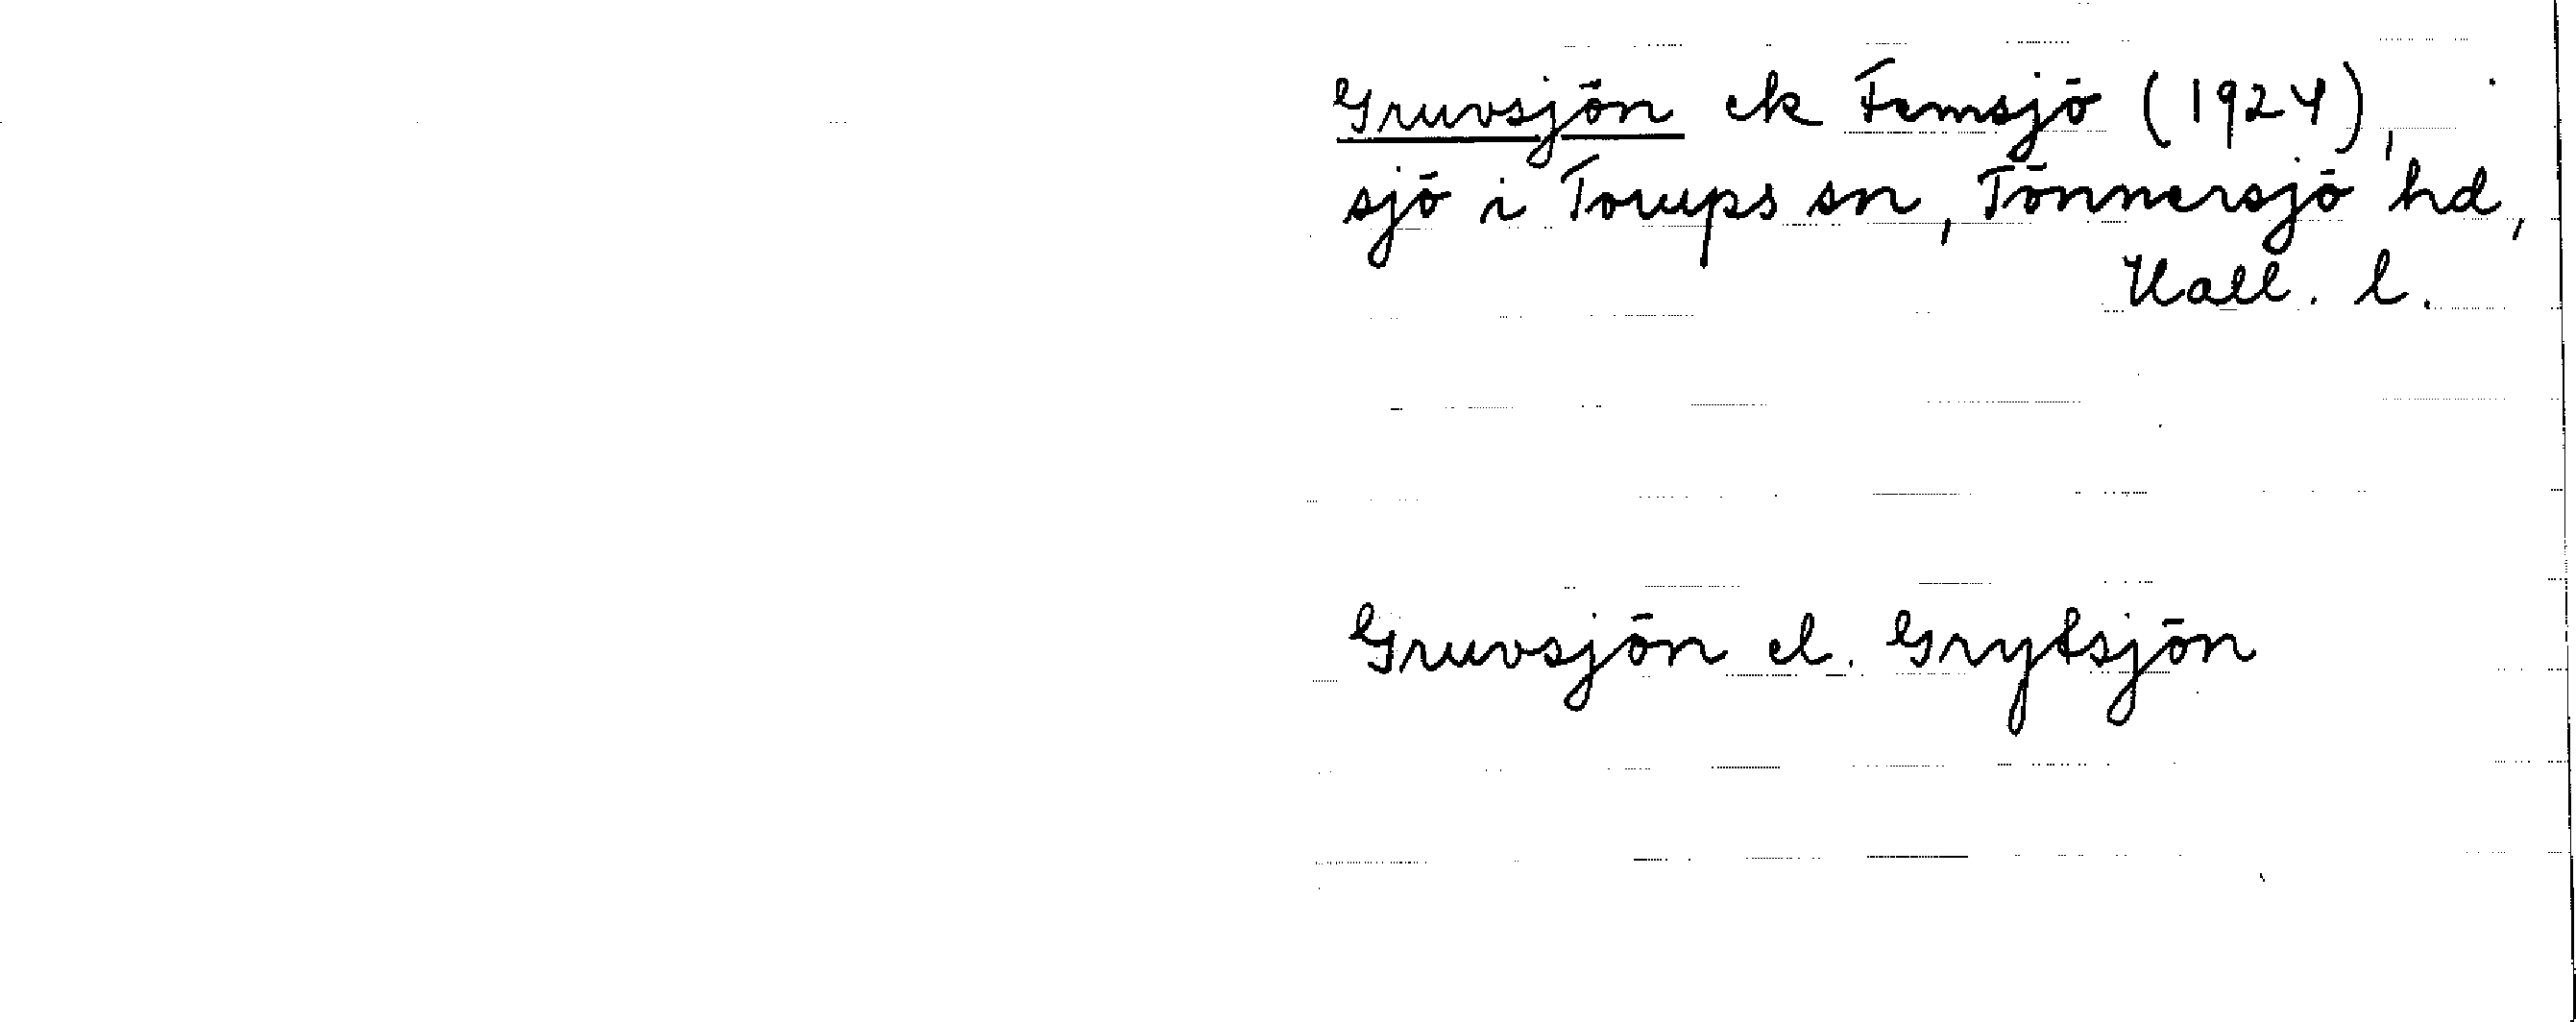 Gruvsjön ek Femsjö (1924),
sjö i Torups sn, Tönnersjö hd,
Hall. l.
Gruvsjön el. Grytsjön